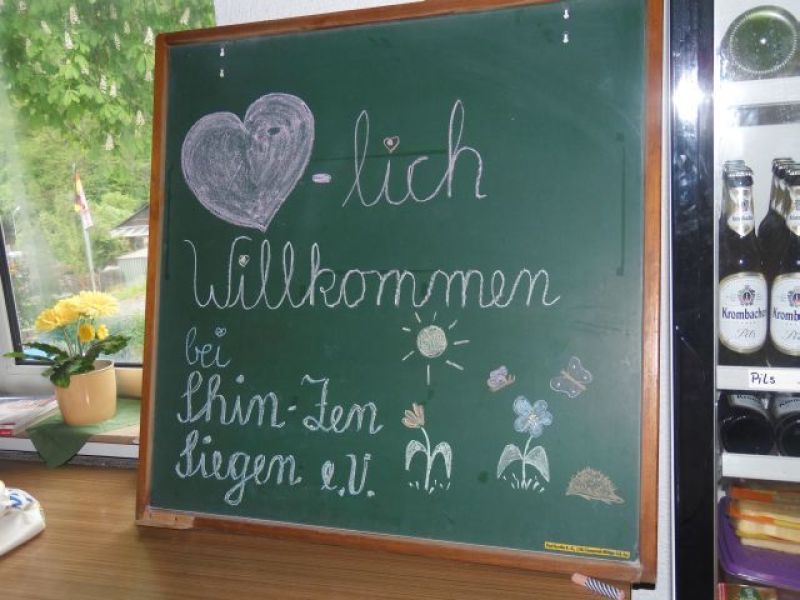 -lich
Willkommen
bei
Shin-Zen
Siegen e.V.
Krombacher
Pils
Krombacher
Pils